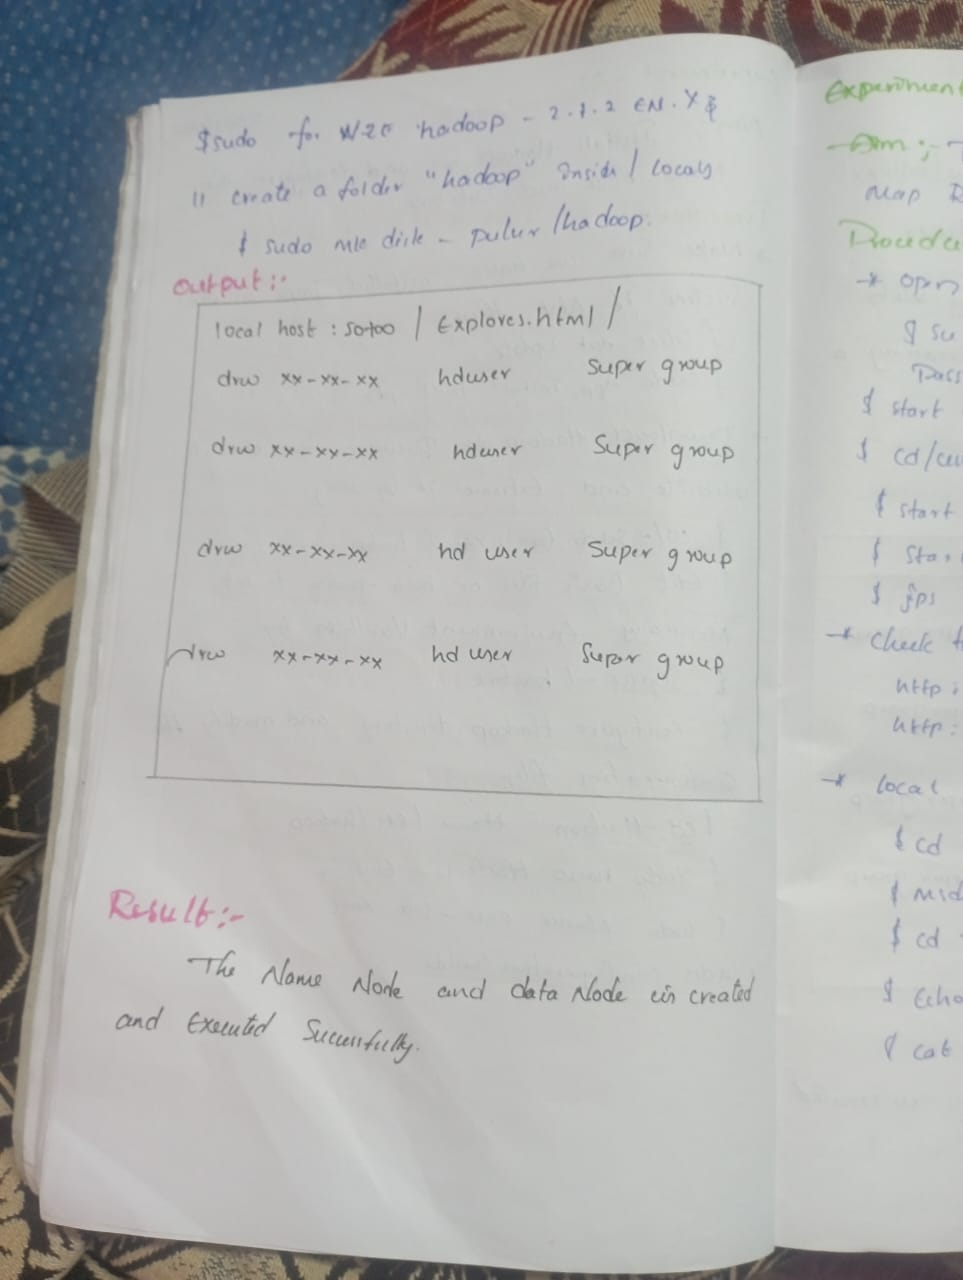 $sudo for hadoop - 2.7.2
11 create a folder "hadoop" Insid / locals
$ sudo disk - /hadoop.
output:-
local host : / Explores.html /
drw xx-xx-xx hduser Super group
drw xx-xx-xx hduser Super group
drw xx-xx-xx hd user Super group
drw xx-xx-xx hd user Super group
Result:-
The Name Node and data Node is created
and Executed Successfully.
Experiment
Aim :-
Map R
Procedu
* open
$ su
Pass
$ start
$ cd/
$ start
$ star
$ jps
* Check t
http :
http :
* local
$ cd
$
$ cd
$ Echo
$ cat